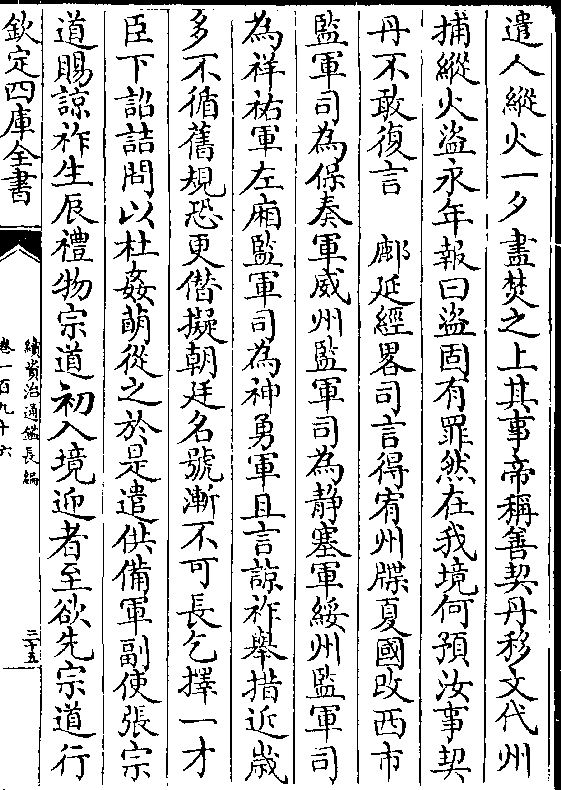 遣人縱火一夕盡焚之上其事帝稱善契丹移文代州
捕縱火盜永年報曰盜固有罪然在我境何預汝事契
丹不敢復言　鄜延經畧司言得宥州牒夏國改西市
監軍司為保奏軍威州監軍司為静塞軍綏州監軍司
為祥祐軍左廂監軍司為神勇軍且言諒祚舉措近歳
多不循舊規恐更僭擬朝廷名號漸不可長乞擇一才
臣下詔詰問以杜姦萌從之於是遣供備軍副使張宗
道賜諒祚生辰禮物宗道初入境迎者至欲先宗道行
欽定四庫全書
續資治通鑑長編
卷一百九十六
三十五